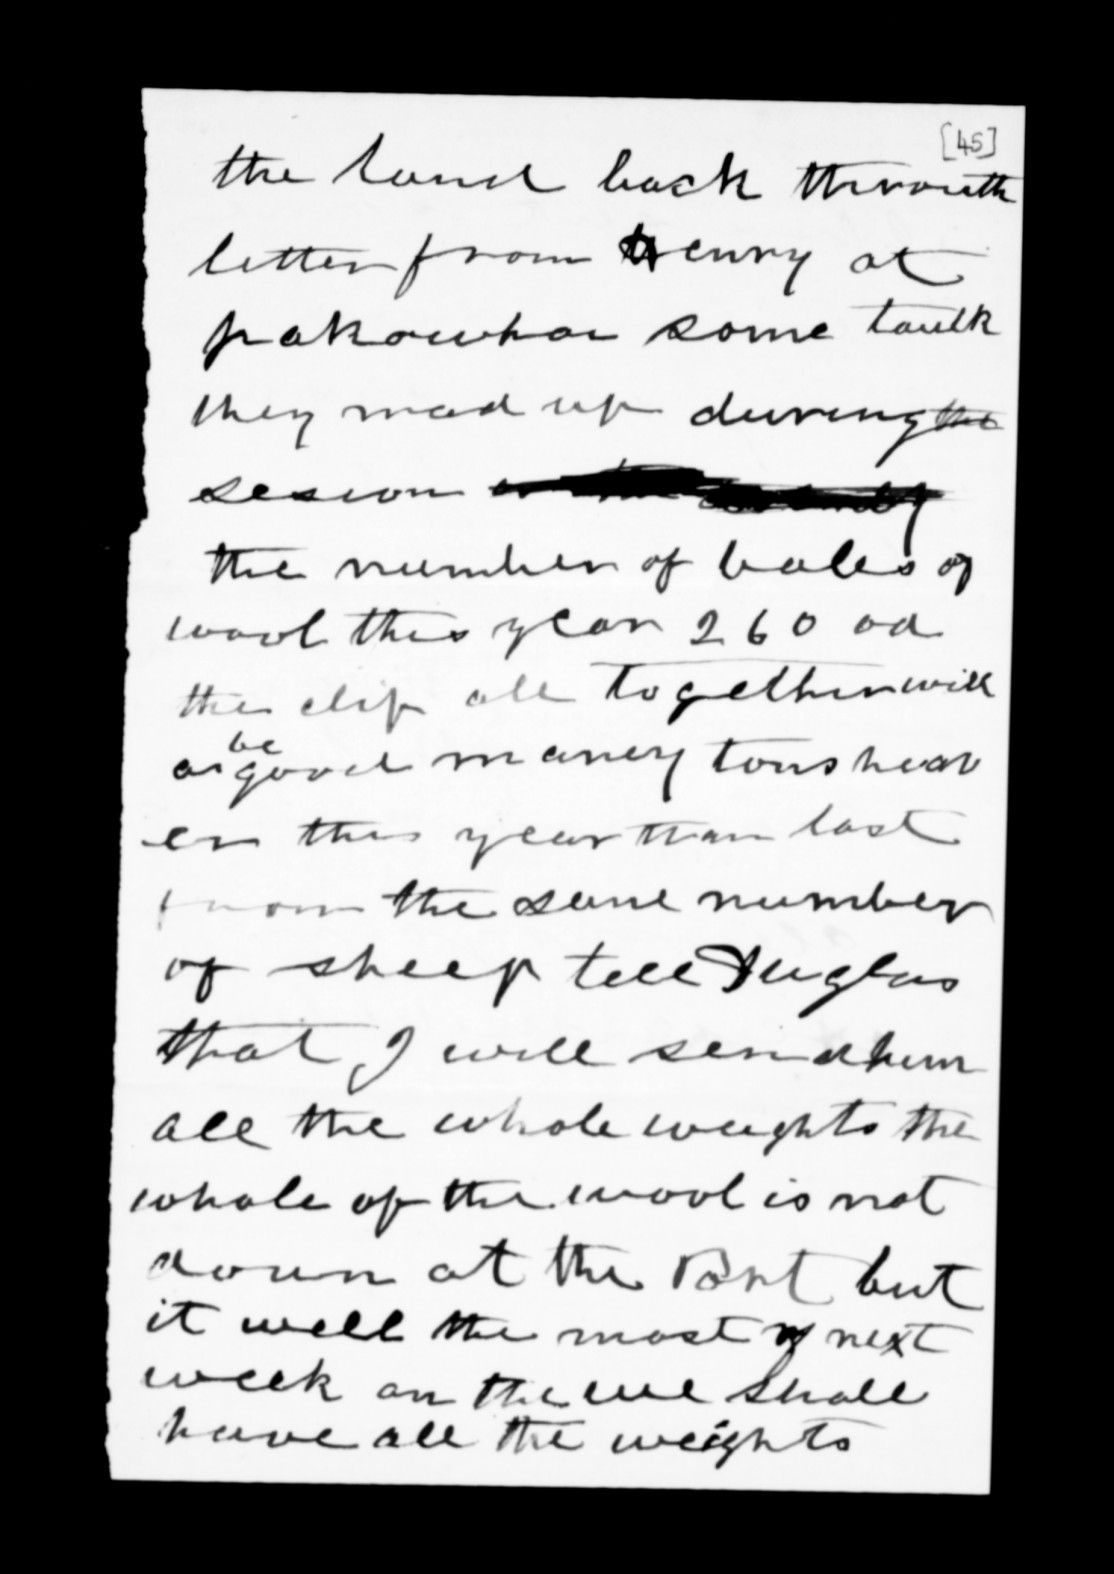 [45]
the land back throuth
letter from Henry at
pakowhai some taulk
they mad up during the
sesion
the number of bales of
wool this year 260 od
the clip all together will
be
a good maney tons heav
er this year than last
from the same number
of sheep tell Duglas
that I will send him
all the whole weights the
whole of the wool is not
down at the Port but
it well the most of next
week an the we shall
have all the weights